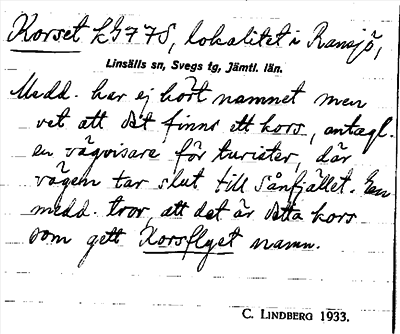 Korset LG778, lokalitet i Ransjö,
Linsälls sn, Svegs tg, Jämtl. län.
Medd. har ej hört namnet men
vet att det finns ett kors, antagl.
en vägvisare för turister, där
vägen tar slut till Sånfjället. En
medd. tror, att det är detta kors
som gett Korsflyet namn.
C. LINDBERG 1933.